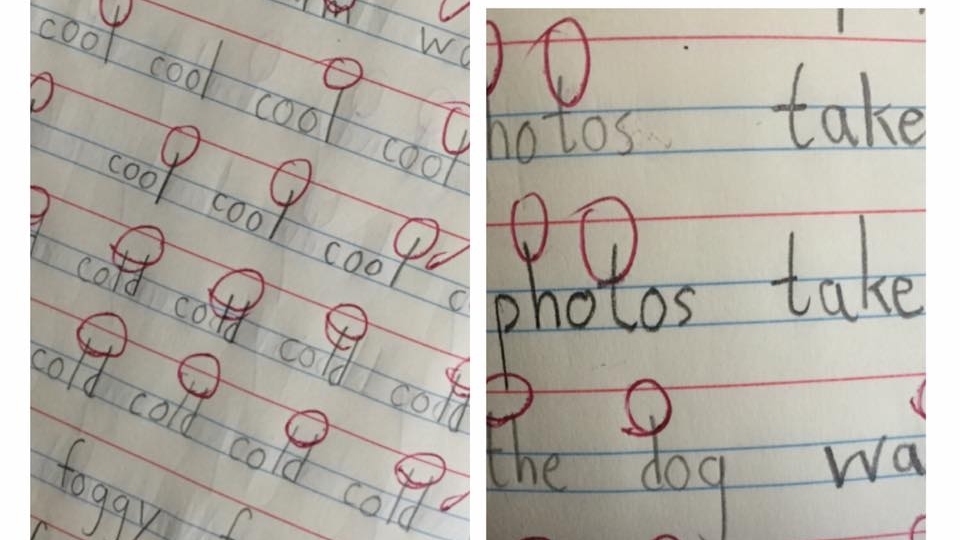 cool cool cool cool
cool cool cool
cold cold cold cold
cold cold cold cold
foggy
hotos take
photos take
the dog wa